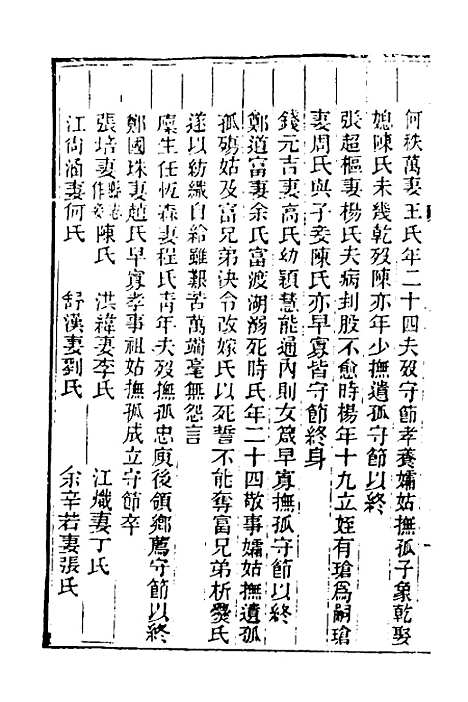 何秩萬妻王氏年二十四夫歿守節孝養孀姑撫孤子象乾娶
媳陳氏未幾乾歿陳亦年少撫遺孤守節以終
張超樞妻楊氏夫病刲股不愈時楊年十九立姪有瑲爲嗣瑲
妻周氏與子妾陳氏亦早寡皆守節終身
錢元吉妻高氏幼穎慧能通內則女箴早寡撫孤守節以終
鄭道富妻余氏富渡湖溺死時氏年二十四敬事孀姑撫遺孤
孤殞姑及富兄弟決令改嫁氏以死誓不能奪富兄弟析爨氏
遂以紡織自給雖艱苦萬端毫無怨言
廩生任恆森妻程氏靑年夫歿撫孤忠庾後領鄉薦守節以終
鄭國珠妻趙氏早寡孝事祖姑撫孤成立守節卒
張培妻陳氏　洪禕妻李氏　江熾妻丁氏
江尙涵妻何氏　舒漢妻劉氏　余辛若妻張氏